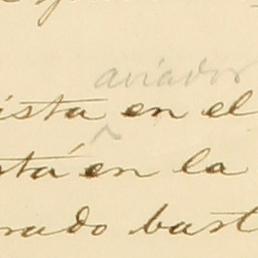 aviador
ista en el
stá en la
rado bast